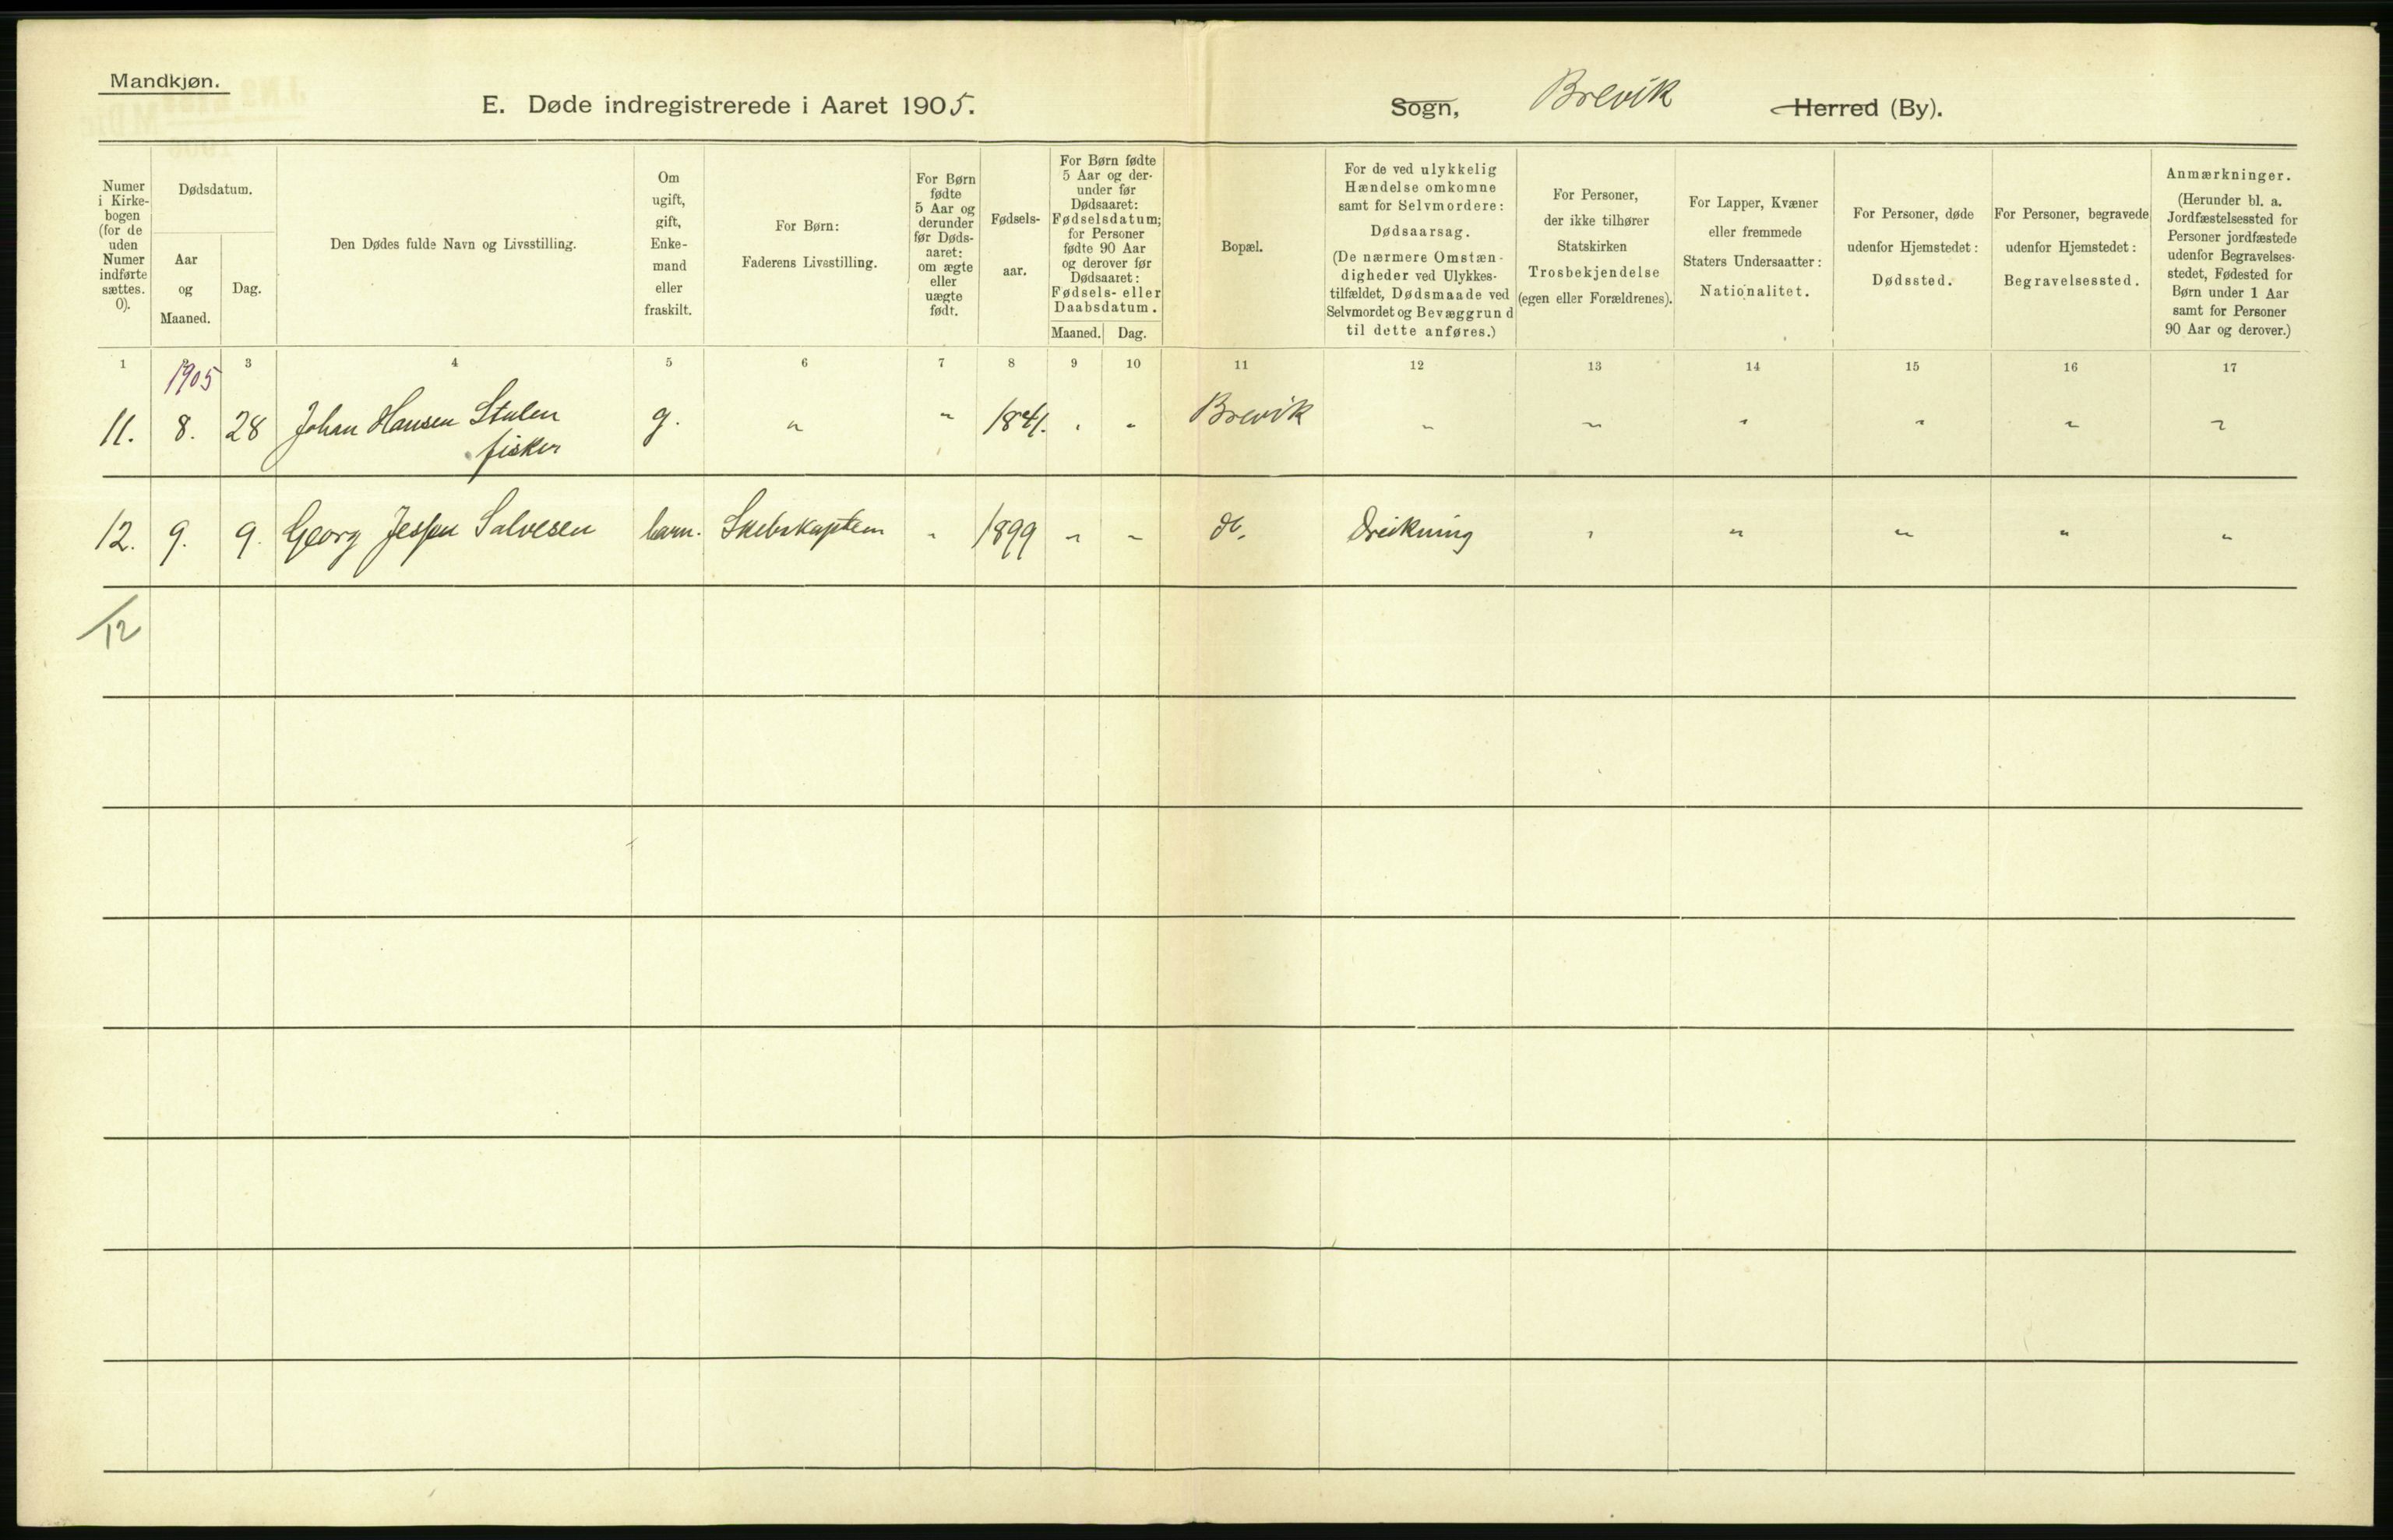 Mandkjøn.
E. Døde indregistrerede i Aaret 1905.
Sogn, Brevik Herred (By).
Numer i Kirke-bogen (for de uden Numer indførte sættes. 0).
Dødsdatum.
Aar og Maaned.
Dag.
Den Dødes fulde Navn og Livsstilling.
Om ugift, gift, Enke-mand eller fraskilt.
For Børn:
Faderens Livsstilling.
For Børn fødte 5 Aar og derunder før Døds-aaret: om ægte eller uægte født.
Fødsels-aar.
For Børn fødte 5 Aar og der-under før Dødsaaret: Fødselsdatum; for Personer fødte 90 Aar og derover før Dødsaaret: Fødsels- eller Daabsdatum.
Maaned. Dag.
Bopæl.
For de ved ulykkelig Hændelse omkomne samt for Selvmordere:
Dødsaarsag.
(De nærmere Omstæn-digheder ved Ulykkes-tilfældet, Dødsmaade ved Selvmordet og Bevæggrund til dette anføres.)
For Personer, der ikke tilhører Statskirken
Trosbekjendelse
(egen eller Forældrenes).
For Lapper, Kvæner eller fremmede Staters Undersaatter:
Nationalitet.
For Personer, døde udenfor Hjemstedet:
Dødssted.
For Personer, begravede udenfor Hjemstedet:
Begravelsessted.
Anmærkninger.
(Herunder bl. a. Jordfæstelsessted for Personer jordfæstede udenfor Begravelses-stedet, Fødested for Børn under 1 Aar samt for Personer 90 Aar og derover.)
1 3 4 5 6 7 8 9 10 11 12 13 14 15 16 17
1905
11. 8. 28 Johan Hansen Stulen g. " " 1841. " " Brevik " " " " " "
fisker
12. 9. 9. Georg Jespen Salvesen barn. Skibskaptein " 1899 " " do. Drukning " " " " "
12